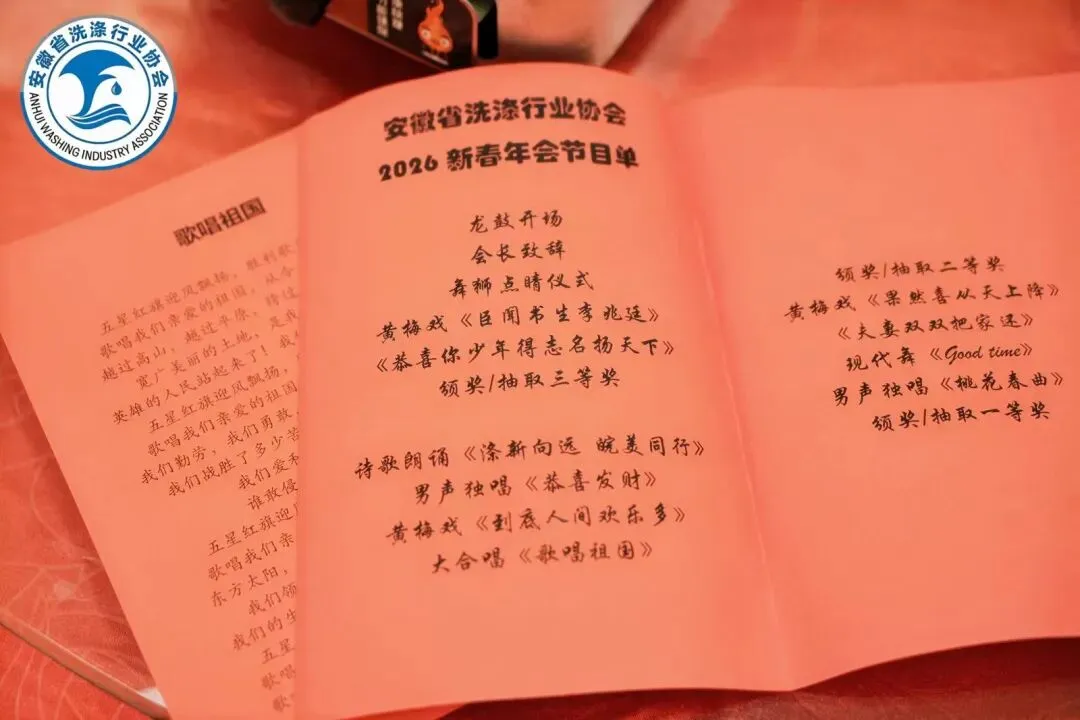 安徽省洗涤行业协会
ANHUI WASHING INDUSTRY ASSOCIATION
安徽省洗涤行业协会
2026 新春年会节目单
龙鼓开场
会长致辞
舞狮点睛仪式
黄梅戏《臣闻书生李兆廷》
《恭喜你少年得志名扬天下》
颁奖/抽取三等奖
诗歌朗诵《涤新向远 皖美同行》
男声独唱《恭喜发财》
黄梅戏《到底人间欢乐多》
大合唱《歌唱祖国》
颁奖/抽取二等奖
黄梅戏《果然喜从天上降》
《夫妻双双把家还》
现代舞《Good time》
男声独唱《桃花春曲》
颁奖/抽取一等奖
歌唱祖国
五星红旗迎风飘扬，胜利歌
歌唱我们亲爱的祖国，从今
越过高山，越过平原，跨过
宽广美丽的土地，是我
英雄的人民站起来了！我
五星红旗迎风飘扬，
歌唱我们亲爱的祖国
我们勤劳，我们勇敢，
我们战胜了多少苦
我们爱和
谁敢侵
五星红旗迎风
歌唱我们亲
东方太阳，
我们领
我们的生
五星
歌唱
歌